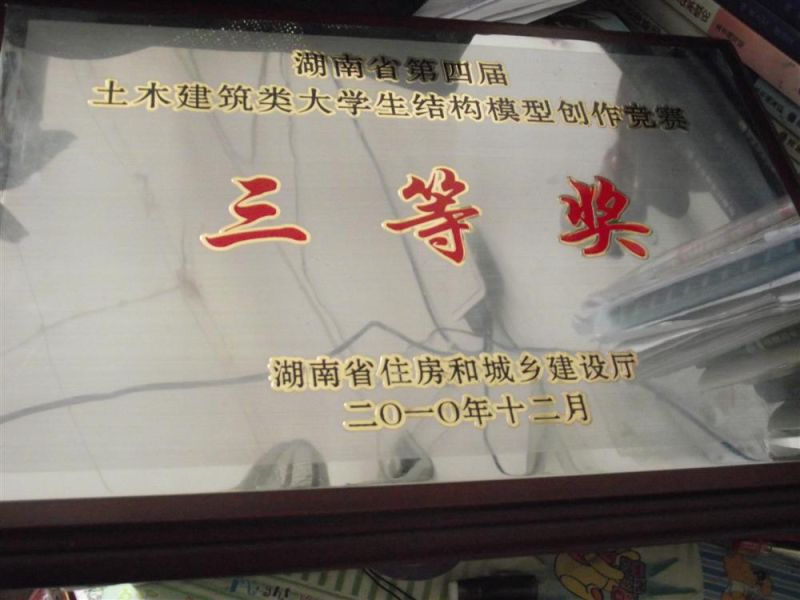 湖南省第四届
土木建筑类大学生结构模型创作竞赛
三等奖
湖南省住房和城乡建设厅
二〇一〇年十二月